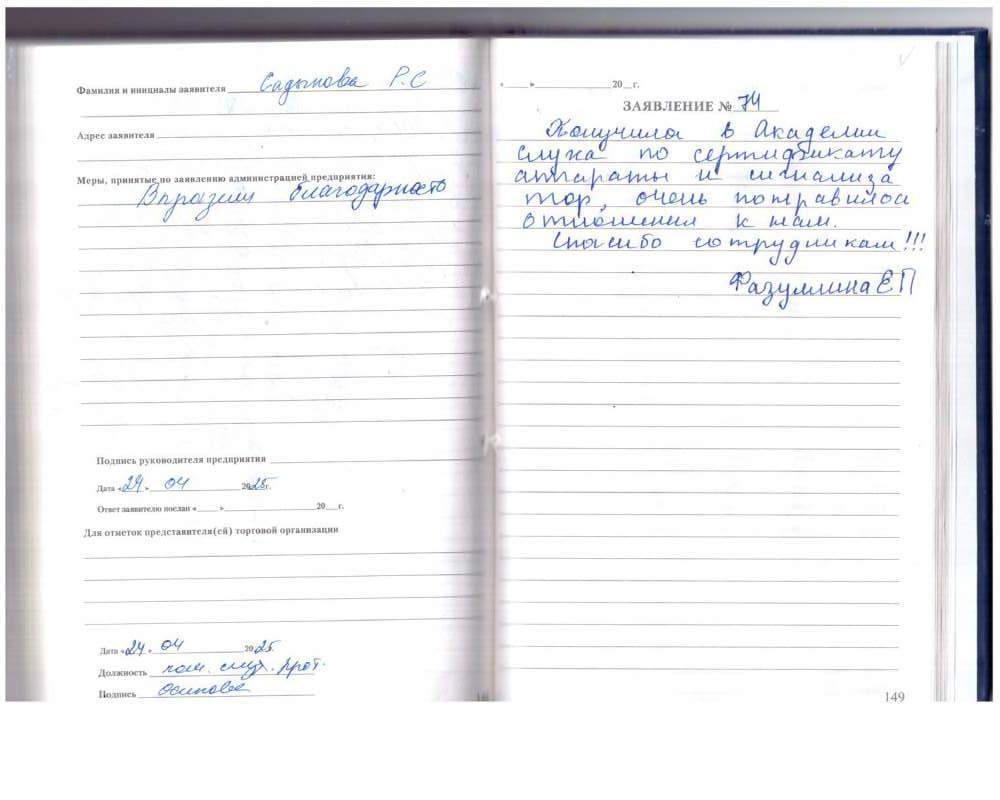 Фамилия и инициалы заявителя Садыкова Р.С
Адрес заявителя
Меры, принятые по заявлению администрацией предприятия:
благодарность
Подпись руководителя предприятия
Дата «24» 04 2025г.
Ответ заявителю послан «___» ___ 20__г.
Для отметок представителя(ей) торговой организации
Дата «24» 04 2025
Должность пом. слух. прот.
Подпись Осипова
«___» ___ 20__г.
ЗАЯВЛЕНИЕ № 74
Получила в Академии
слуха по сертификату
аппараты и сигнализа
тор, очень понравилос
отношения к нам.
Спасибо сотрудникам!!!
Фазуллина ЕП
149